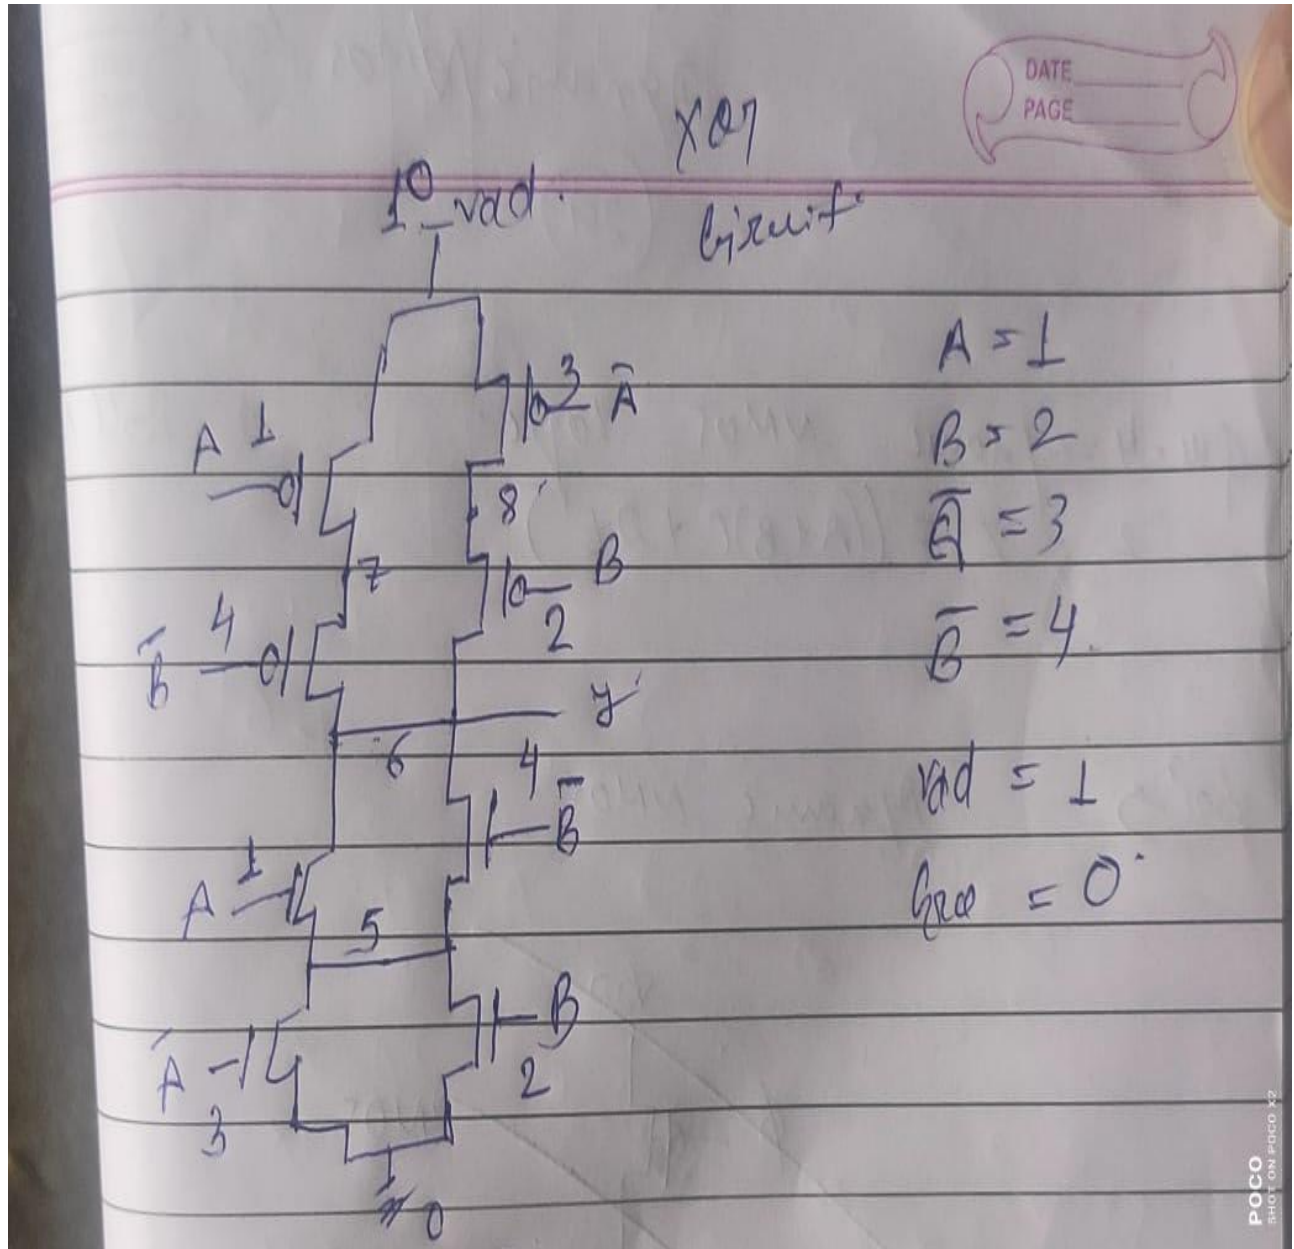 DATE
PAGE
XOR
Circuit
10 vdd.
A 1
3 Ā
8
7
B
2
4
B̄
y
6
4
B̄
A 1
5
Ā
3
B
2
0
A = 1
B = 2
Ā = 3
B̄ = 4.
vdd = 1
= 0
POCO
SHOT ON POCO X2